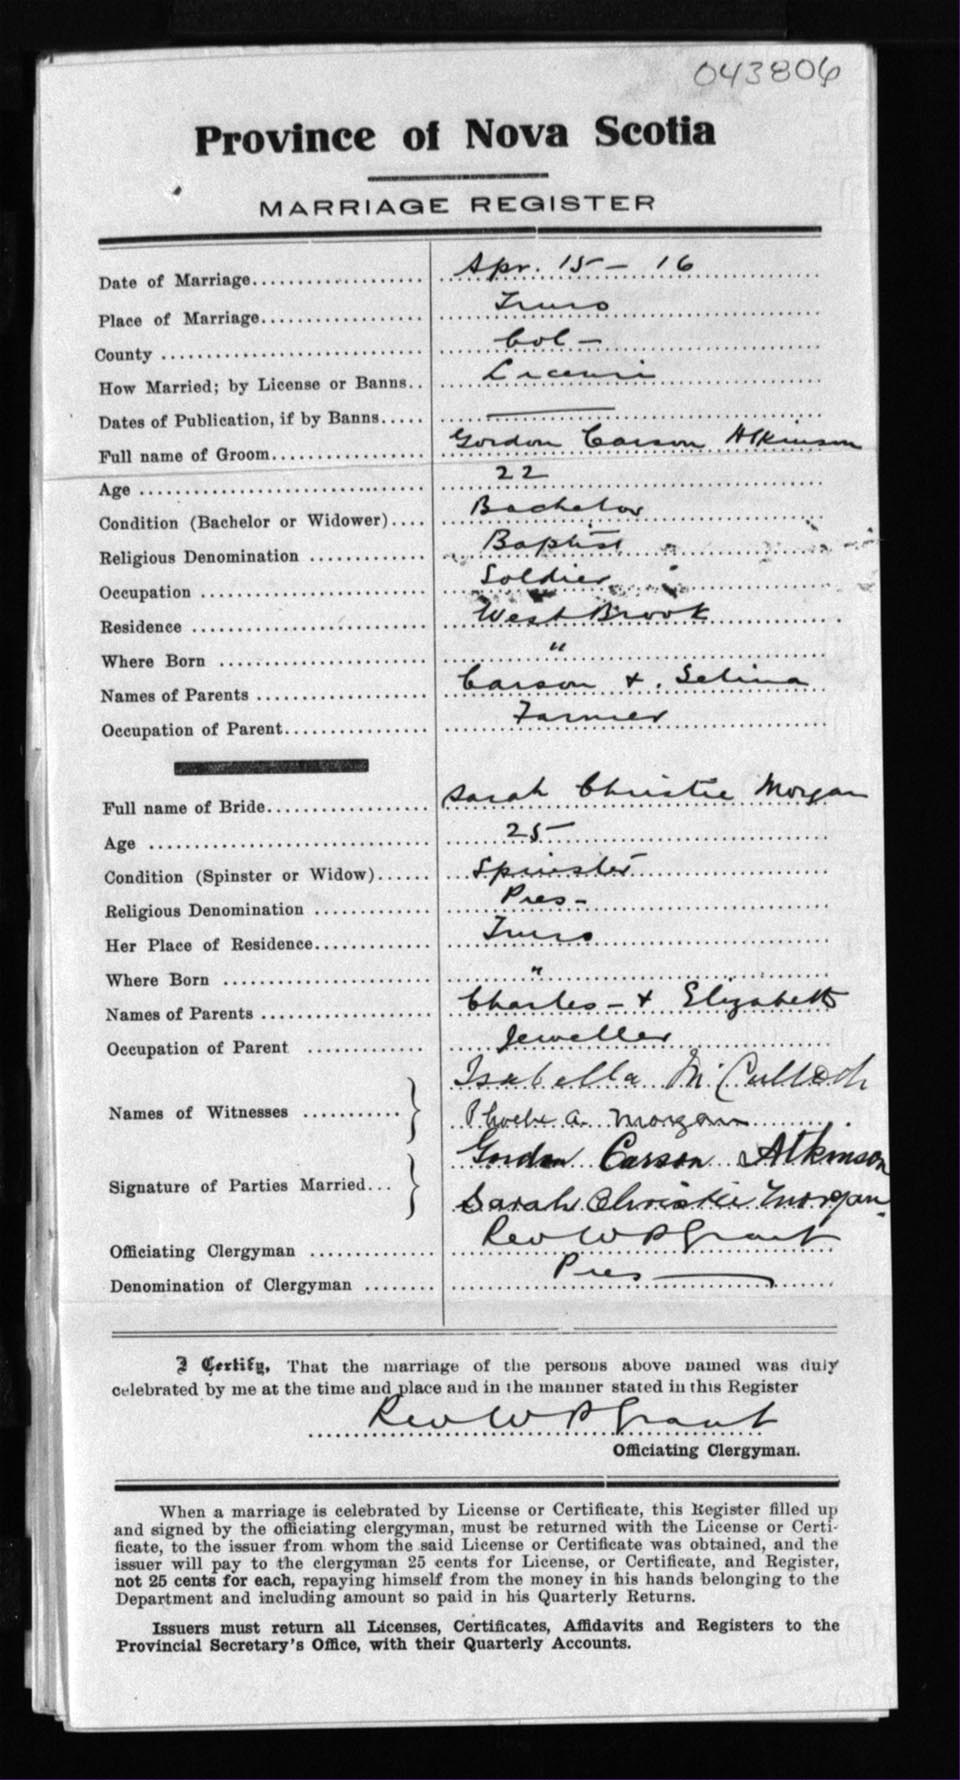 043806
Province of Nova Scotia
MARRIAGE REGISTER
Date of Marriage Apr. 15 - 16
Place of Marriage Truro
County Col -
How Married; by License or Banns Licence
Dates of Publication, if by Banns
Full name of Groom Gordon Carson Atkinson
Age 22
Condition (Bachelor or Widower) Bachelor
Religious Denomination Baptist
Occupation Soldier
Residence West Brook
Where Born "
Names of Parents Carson +. Selina
Occupation of Parent Farmer
Full name of Bride Sarah Christie Morgan
Age 25
Condition (Spinster or Widow) Spinster
Religious Denomination Pres -
Her Place of Residence Truro
Where Born "
Names of Parents Charles - + Elizabeth
Occupation of Parent Jeweller
Isabella McCulloch
Names of Witnesses
Phoebe A. Morgan
Gordon Carson Atkinson
Signature of Parties Married
Sarah Christie Morgan
Officiating Clergyman Rev W P Grant
Denomination of Clergyman Pres
I Certify, That the marriage of the persons above named was duly
celebrated by me at the time and place and in the manner stated in this Register
Rev W P Grant
Officiating Clergyman.
When a marriage is celebrated by License or Certificate, this Register filled up
and signed by the officiating clergyman, must be returned with the License or Certi-
ficate, to the issuer from whom the said License or Certificate was obtained, and the
issuer will pay to the clergyman 25 cents for License, or Certificate, and Register,
not 25 cents for each, repaying himself from the money in his hands belonging to the
Department and including amount so paid in his Quarterly Returns.
Issuers must return all Licenses, Certificates, Affidavits and Registers to the
Provincial Secretary's Office, with their Quarterly Accounts.